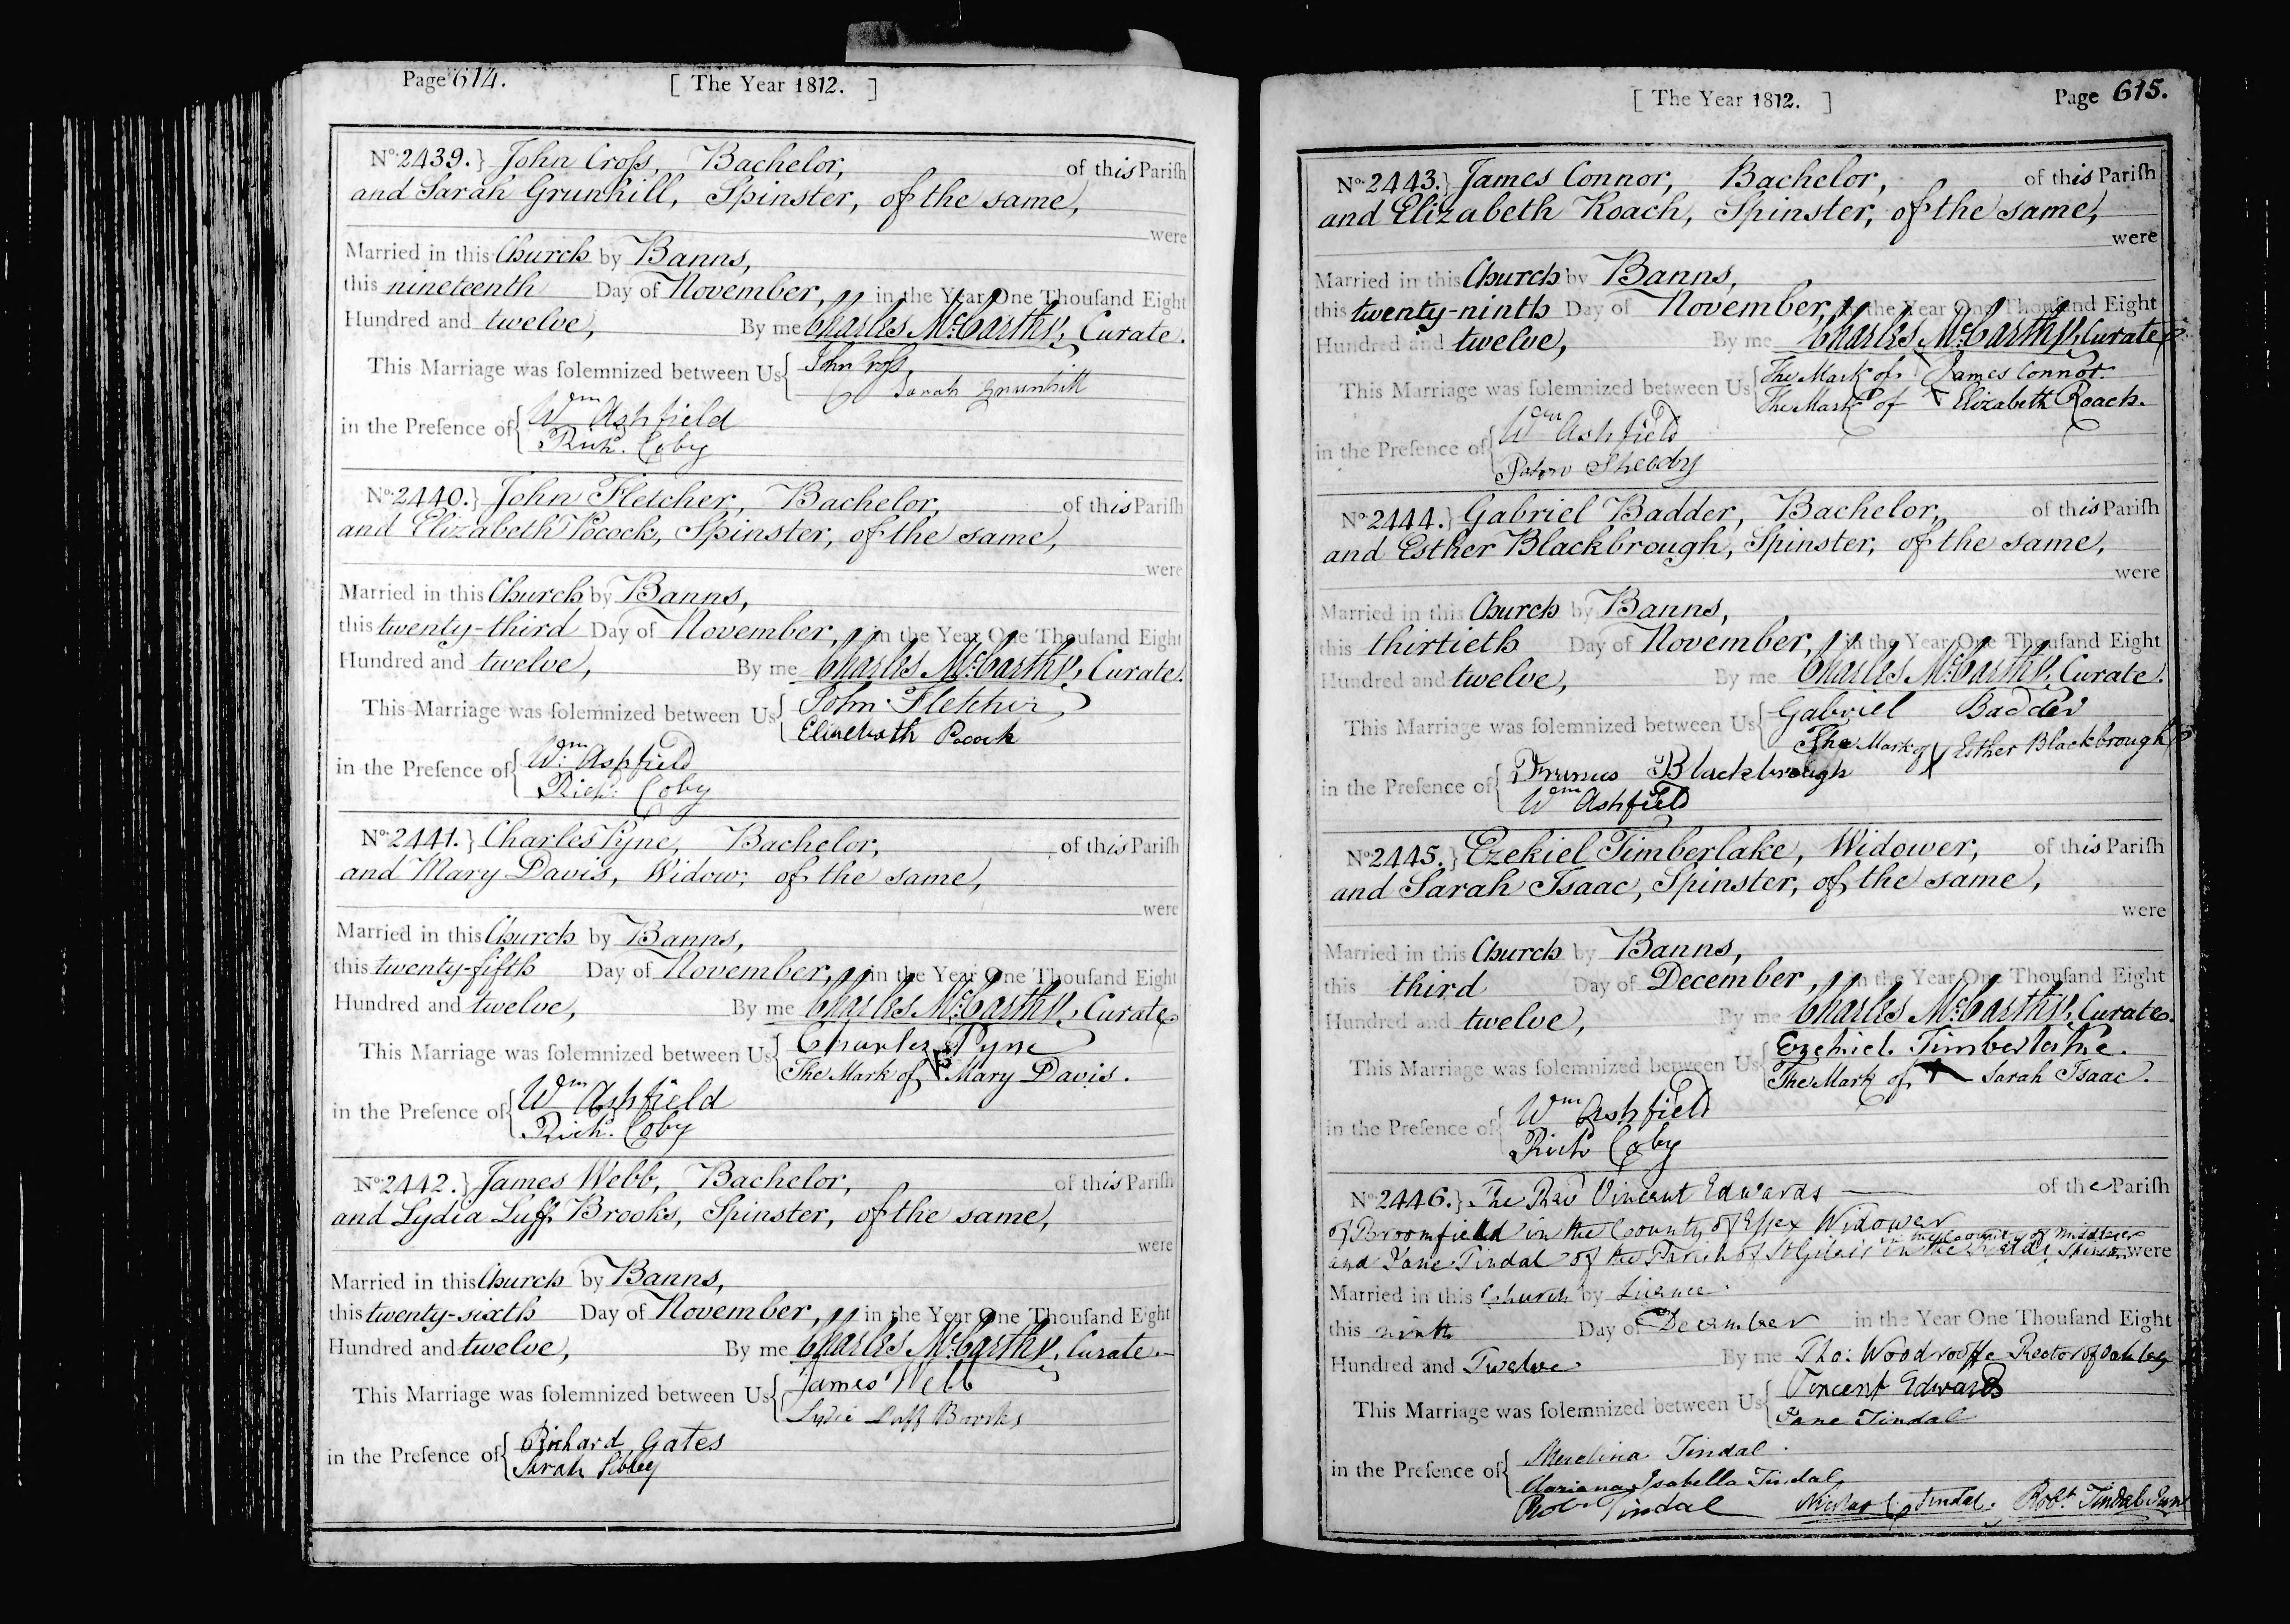 Page 614. [ The Year 1812. ]
No. 2439. } John Croſs, Bachelor, of this Pariſh
and Sarah Grunhill, Spinster, of the same,
were
Married in this Church by Banns,
this nineteenth Day of November, in the Year One Thouſand Eight
Hundred and twelve, By me Charles McCarthy, Curate.
This Marriage was ſolemnized between Us { John Croſs
Sarah Grunhill
in the Preſence of { Wm Ashfield
Richd. Coby
No. 2440. } John Fletcher, Bachelor, of this Pariſh
and Elizabeth Pocock, Spinster, of the same,
were
Married in this Church by Banns,
this twenty-third Day of November, in the Year One Thouſand Eight
Hundred and twelve, By me Charles McCarthy, Curate.
This Marriage was ſolemnized between Us { John Fletcher
Elizebath Pocock
in the Preſence of { Wm. Ashfield
Richd. Coby
No. 2441. } Charles Pyne, Bachelor, of this Pariſh
and Mary Davis, Widow, of the same,
were
Married in this Church by Banns,
this twenty-fifth Day of November, in the Year One Thouſand Eight
Hundred and twelve, By me Charles McCarthy, Curate
This Marriage was ſolemnized between Us { Charles Pyne
The Mark of X Mary Davis.
in the Preſence of { Wm Ashfield
Richd. Coby
No. 2442. } James Webb, Bachelor, of this Pariſh
and Lydia Luff Brooks, Spinster, of the same,
were
Married in this Church by Banns,
this twenty-sixth Day of November, in the Year One Thouſand Eight
Hundred and twelve, By me Charles McCarthy, Curate.
This Marriage was ſolemnized between Us { James Webb
Lydia Luff Brooks
in the Preſence of { Richard Gates
Sarah Sibley
[ The Year 1812. ] Page 615.
No. 2443. } James Connor, Bachelor, of this Pariſh
and Elizabeth Roach, Spinster, of the same,
were
Married in this Church by Banns,
this twenty-ninth Day of November, in the Year One Thouſand Eight
Hundred and twelve, By me Charles McCarthy, Curate
This Marriage was ſolemnized between Us { The Mark of X James Connor.
The Mark of X Elizabeth Roach.
in the Preſence of { Wm Ashfield
Sheedy
No. 2444. } Gabriel Badder, Bachelor, of this Pariſh
and Esther Blackbrough, Spinster, of the same,
were
Married in this Church by Banns,
this thirtieth Day of November, in the Year One Thouſand Eight
Hundred and twelve, By me Charles McCarthy, Curate.
This Marriage was ſolemnized between Us { Gabriel Badder
The Mark of X Esther Blackbrough
in the Preſence of { Blackbrough
Wm Ashfield
No. 2445. } Ezekiel Timberlake, Widower, of this Pariſh
and Sarah Isaac, Spinster, of the same,
were
Married in this Church by Banns,
this third Day of December, in the Year One Thouſand Eight
Hundred and twelve, By me Charles McCarthy, Curate.
This Marriage was ſolemnized between Us { Ezekiel Timberlake.
The Mark of X Sarah Isaac.
in the Preſence of { Wm Ashfield
Richd Coby
No. 2446. } The Revd Vincent Edwards of the Pariſh
of Broomfield in the County of Eſsex Widower
in the County of Middlesex
and Jane Tindal of the Parish of St Giles in the Fields Spinster were
Married in this Church by Licence
this ninth Day of December in the Year One Thouſand Eight
Hundred and Twelve By me Tho: Woodrooffe Rector of Oakley
This Marriage was ſolemnized between Us { Vincent Edwards
Jane Tindal
in the Preſence of { Tindal
Isabella Tindal
Robt Tindal Nicholas C. Tindal. Robt. Tindal Junr